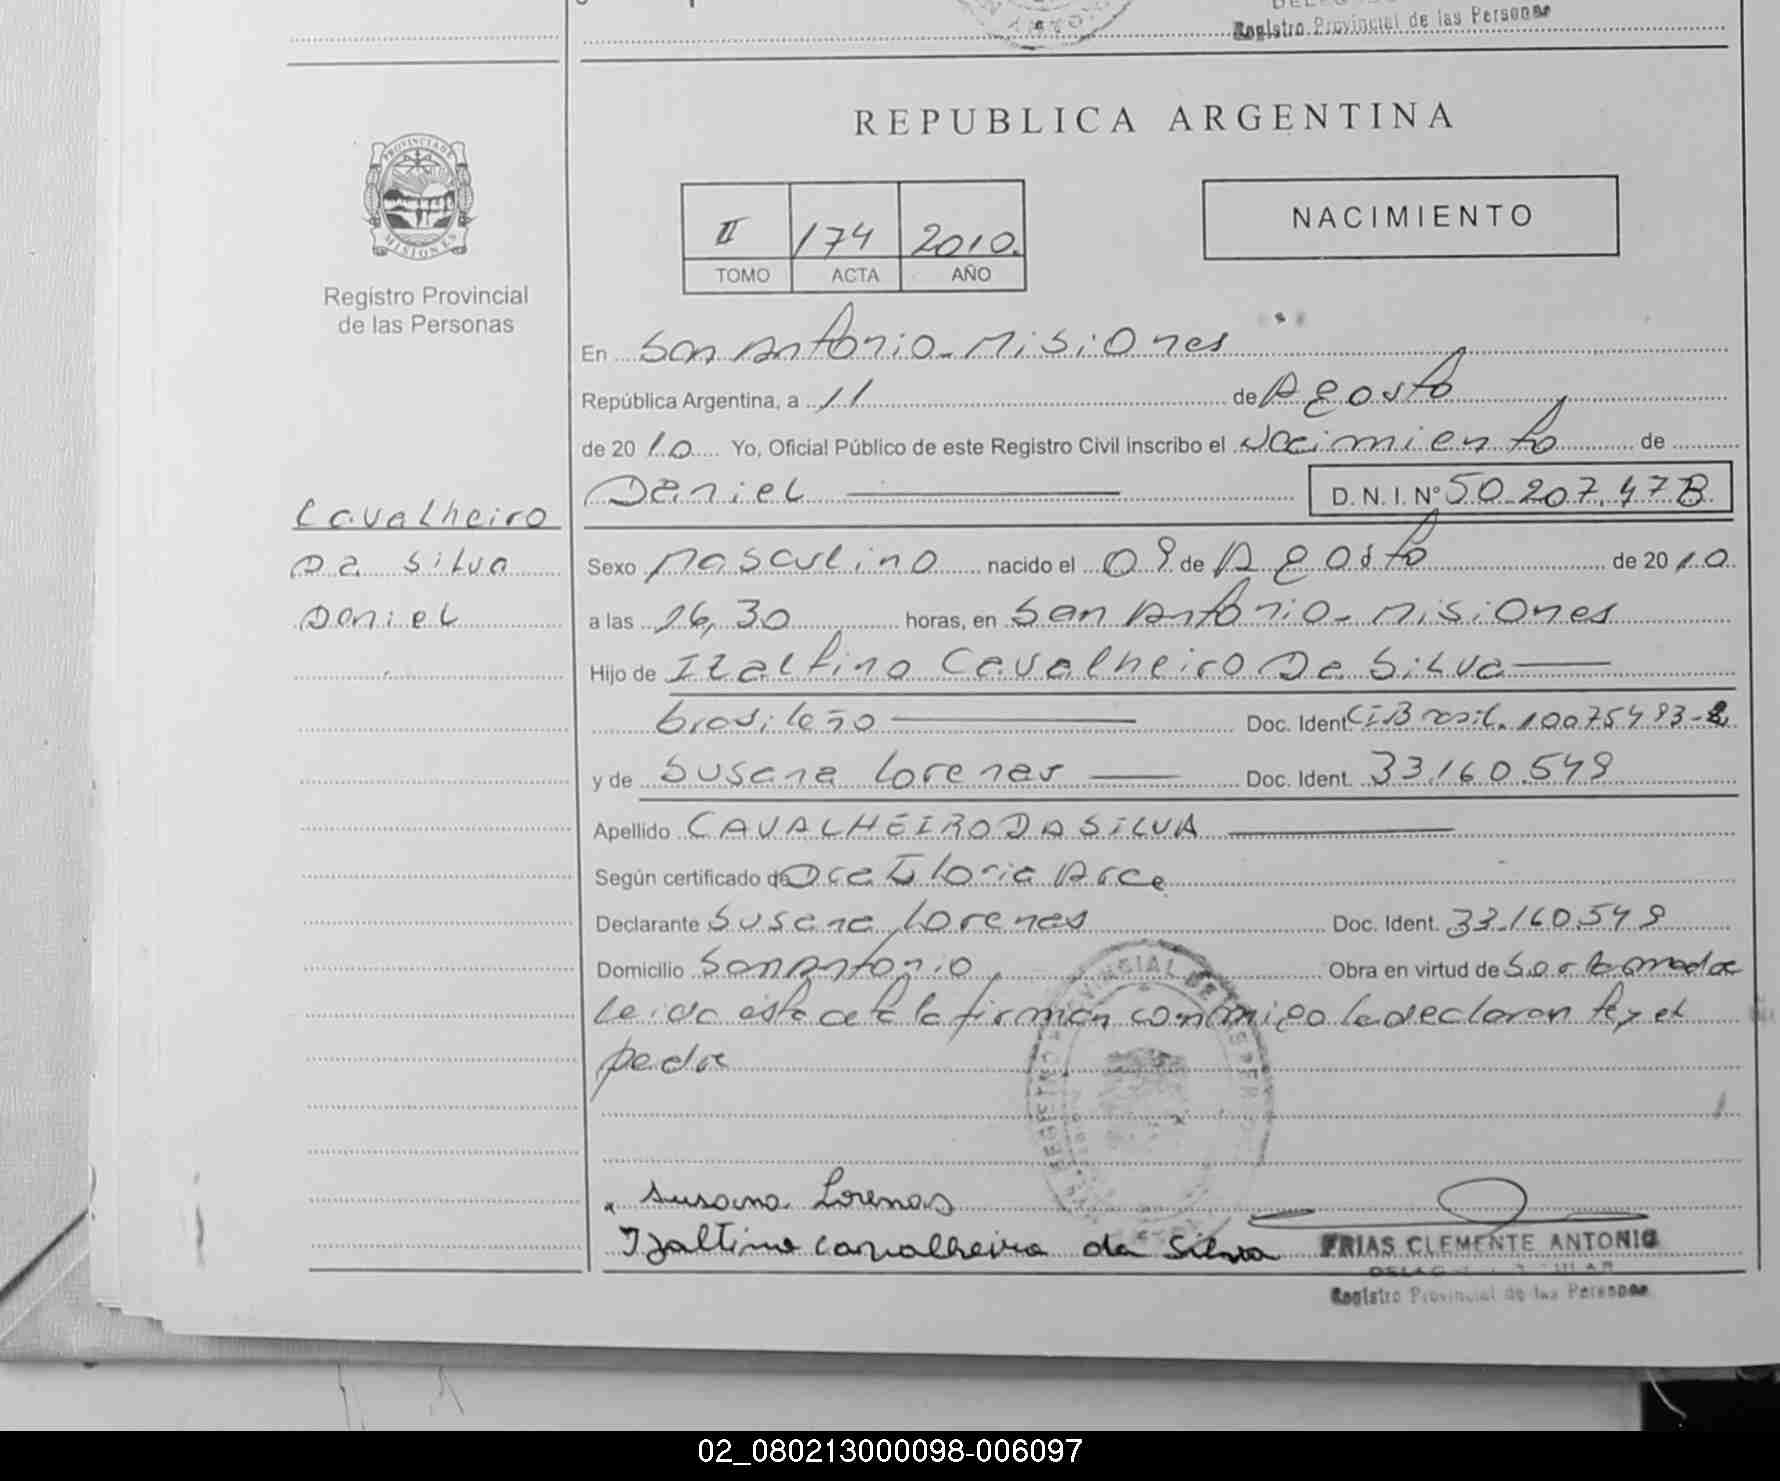 Registro Provincial de las Personas
REPUBLICA ARGENTINA
PROVINCIA DE
MISIONES
Registro Provincial
de las Personas
II 174 2010.
TOMO ACTA AÑO
NACIMIENTO
En San Antonio - Misiones
República Argentina, a 11 de Agosto
de 2010 Yo, Oficial Público de este Registro Civil inscribo el Nacimiento de
Daniel D. N. I. Nº 50.207.478
Cavalheiro
Da Silva
Daniel
Sexo Masculino nacido el 09 de Agosto de 2010
a las 16,30 horas, en San Antonio - Misiones
Hijo de Izaltino Cavalheiro Da Silva
brasileño Doc. Ident. CI Brasil. 10075493-
y de Susana Lorenas Doc. Ident. 33.160.549
Apellido CAVALHEIRO DA SILVA
Según certificado de Dra Gloria Arce
Declarante Susana Lorenas Doc. Ident. 33.160.549
Domicilio San Antonio Obra en virtud de
Leida esta acta la firman conmigo la declaran te y el
padre
Susana Lorenas
Izaltino Cavalheiro da Silva
FRIAS CLEMENTE ANTONIO
Registro Provincial de las Personas
02_080213000098-006097